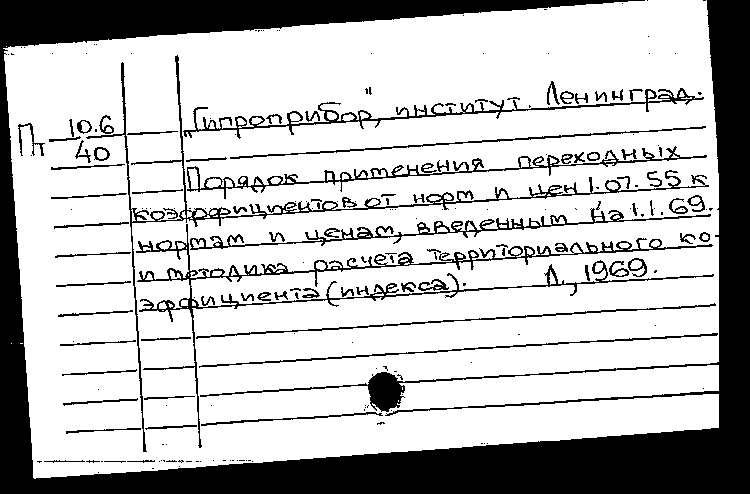 Пт 10.6/40
„Гипроприбор", институт. Ленинград.
Порядок применения переходных
коэффициентов от норм и цен 1.07.55 к
нормам и ценам, введенным на 1.1.69.
и методика расчета территориального ко-
эффициента (индекса). Л., 1969.